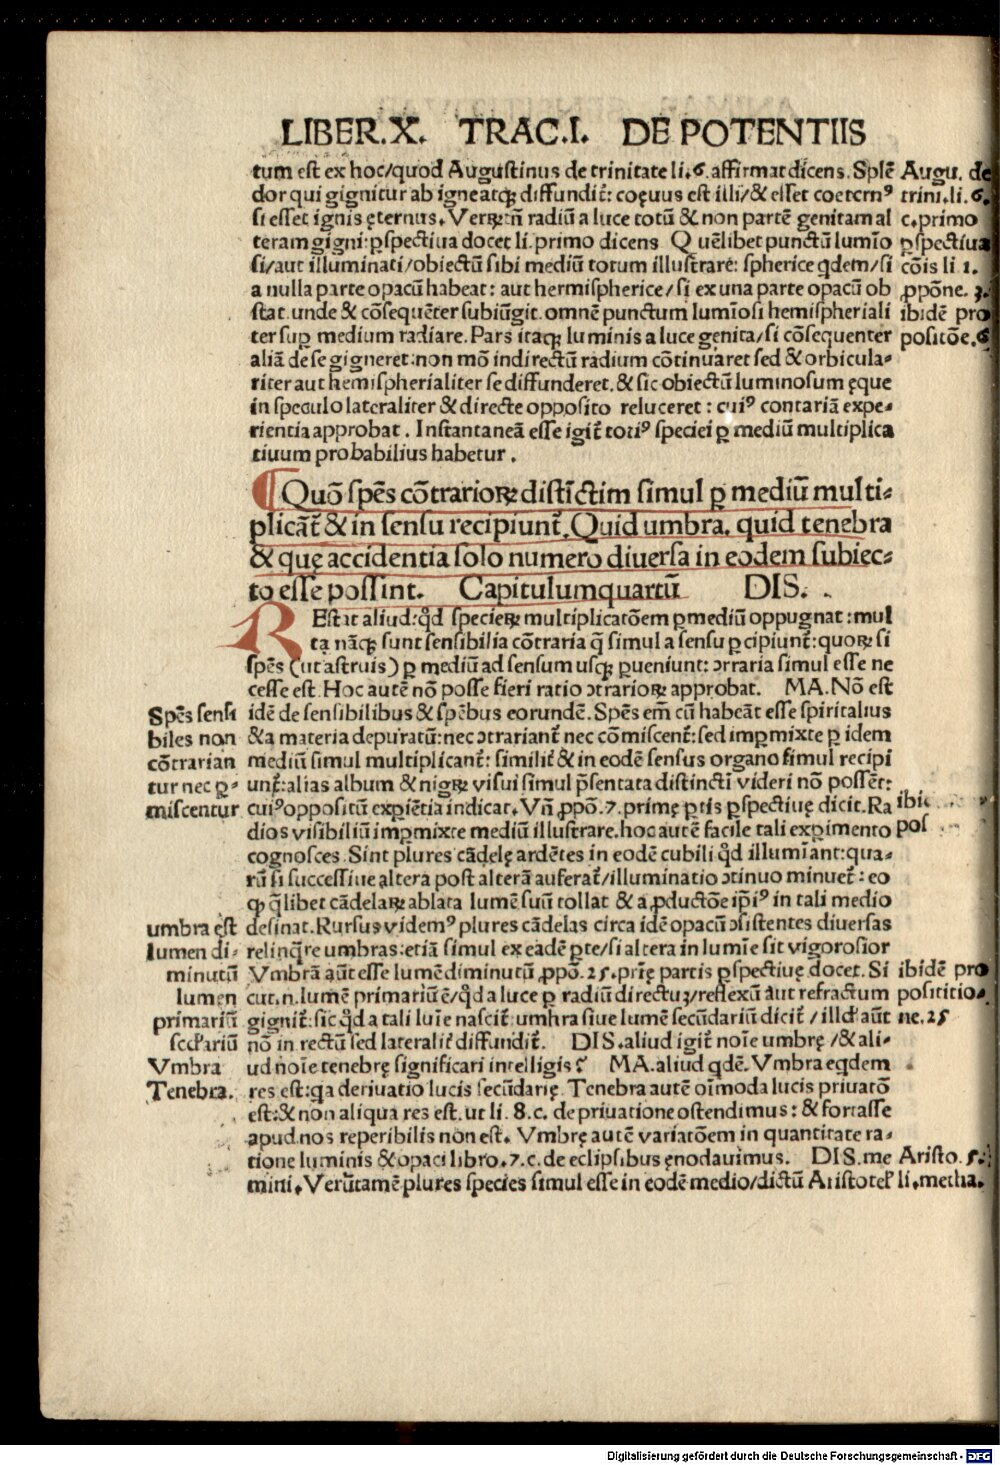 LIBER.X. TRAC.I. DE POTENTIIS
tum est ex hoc/quod Augustinus de trinitate li.6.affirmat dicens.Splē
dor qui gignitur ab igne atqꝫ diffundit᷑: coęuus est illi/& esset coetern⁹
si esset ignis ęternus. Verꝫtn̄ radiū a luce totū & non partē genitam al
teram gigni:ꝑspectiua docet li.primo dicens Quēlibet punctū lumīo
si/aut illuminati/obiectū sibi mediū totum illustrare: spherice qdem/si
a nulla parte opacū habeat: aut hermispherice/si ex una parte opacū ob
stat.unde & cōsequēter subiūgit.omnē punctum lumīosi hemispheriali
ter suꝑ medium radiare.Pars itaqꝫ luminis a luce genita/si cōsequenter
aliā de se gigneret:non mō indirectū radium cōtinuaret sed & orbicula-
riter aut hemispherialiter se diffunderet.& sic obiectū luminosum ęque
in speculo lateraliter & directe opposito reluceret: cui⁹ contariā expe-
rientia approbat. Instantaneā esse igit᷑ toti⁹ speciei ꝑ mediū multiplica
tiuum probabilius habetur.
Augu. de
trini.li.6.
c.primo
ꝑspectiua
cōis li 1.
ꝓpōne. 3.
ibidē pro
positōe.6
¶Quō spēs cōtrarioꝝ distīctim simul ꝑ mediū multi-
plicāt᷑ & in sensu recipiunt᷑.Quid umbra. quid tenebra
& quę accidentia solo numero diuersa in eodem subiec-
to esse possint. Capitulum quartū DIS.
REstat aliud:qd̄ specieꝝ multiplicatōem ꝑ mediū oppugnat:mul
ta nāqꝫ sunt sensibilia cōtraria q̄ simul a sensu ꝑcipiunt᷑:quoꝝ si
spēs (ut astruis) ꝑ mediū ad sensum usqꝫ ꝑueniunt: ↄtraria simul esse ne
cesse est.Hoc autē nō posse fieri ratio ↄtrarioꝝ approbat. MA.Nō est
idē de sensibilibus & spēbus eorundē.Spēs em̄ cū habeāt esse spiritalius
& a materia depuratū:nec ↄtrariant᷑ nec cōmiscent᷑:sed imꝑmixte ꝑ idem
mediū simul multiplicant᷑: similit᷑ & in eodē sensus organo simul recipi
unt᷑:alias album & nigꝝ visui simul p̄sentata distincti videri nō possēt:
cui⁹oppositū exꝑiētia indicat.Vn̄ ꝓpō.7.primę ꝑtis ꝑspectiuę dicit.Ra
dios visibiliū imꝑmixte mediū illustrare.hoc autē facile tali exꝑimento
cognosces.Sint plures cādelę ardētes in eodē cubili qd̄ illumīant:qua-
rū si successiue altera post alterā auferat᷑/illuminatio ↄtinuo minuet᷑: eo
qꝙ q̄libet cādelaꝝ ablata lumē suū tollat & a ꝓductōe ip̄i⁹ in tali medio
desinat.Rursus videm⁹ plures cādelas circa idē opacū ↄsistentes diuersas
relinq̄re umbras:etiā simul ex eadē ꝑte/si altera in lumīe sit vigorosior
Vmbrā aūt esse lumē diminutū ꝓpō.25.prię partis ꝑspectiuę docet.Si
cut.n.lumē primariū ē/qd̄ a luce ꝑ radiū directū/reflexū aut refractum
gignit᷑:sic qd̄ a tali luīe nascit᷑:umbra siue lumē secūdariū dicit᷑/illd̄ aūt
nō in rectū sed lateralit᷑ diffundit᷑. DIS.aliud igit᷑ noīe umbrę /& ali-
ud noīe tenebrę significari intelligis? MA.aliud qdē.Vmbra eqdem
res est:qa deriuatio lucis secūdarię.Tenebra autē oīmoda lucis priuatō
est:& non aliqua res est.ut li.8.c.de priuatione ostendimus:& fortasse
apud nos reperibilis non est. Vmbrę autē variatōem in quantitate ra-
tione luminis & opaci libro.7.c.de eclipsibus ęnodauimus. DIS.me
mini.Verūtamē plures species simul esse in eodē medio/dictū Aristotel᷑
Spēs sensi
biles non
cōtrarian
tur nec ꝑ-
miscentur
umbra est
lumen di-
minutū
lumen
primariū
scd̄ariū
Vmbra
Tenebra.
ibi
pos
ibidē pro
posititio
ne.25
Aristo.5.
li.metha.
Digitalisierung gefördert durch die Deutsche Forschungsgemeinschaft - DFG